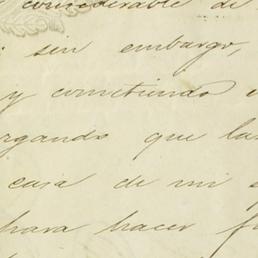 considerable de
sin embargo,
y cometiendo
que las
casa de mi
para hacer